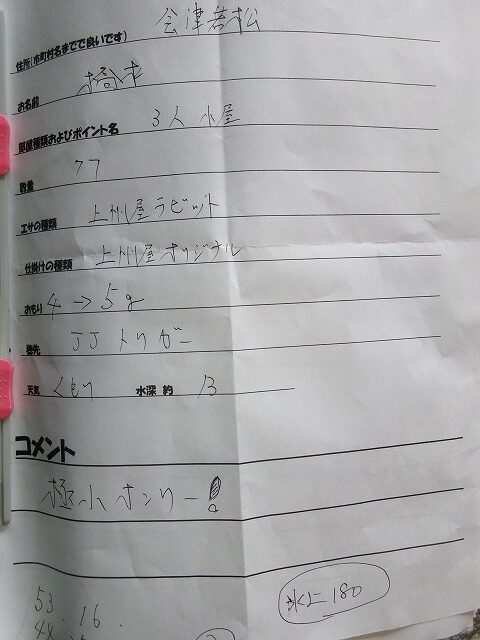 住所(市町村名までで良いです) 会津若松
お名前 橋本
部屋種類およびポイント名 3人小屋
数量 77
エサの種類 上州屋ラビット
仕掛けの種類 上州屋オリジナル
おもり 4→5g
穂先 JJトリガー
天気 くもり 水深 約 13
コメント
極小オンリー!
氷上 180
53 16
44